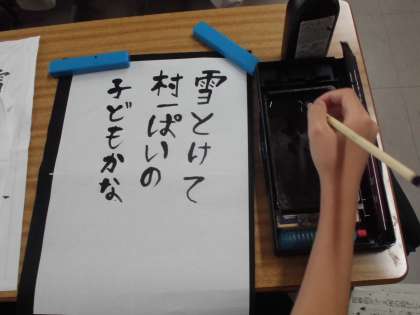 雪とけて
村一ぱいの
子どもかな